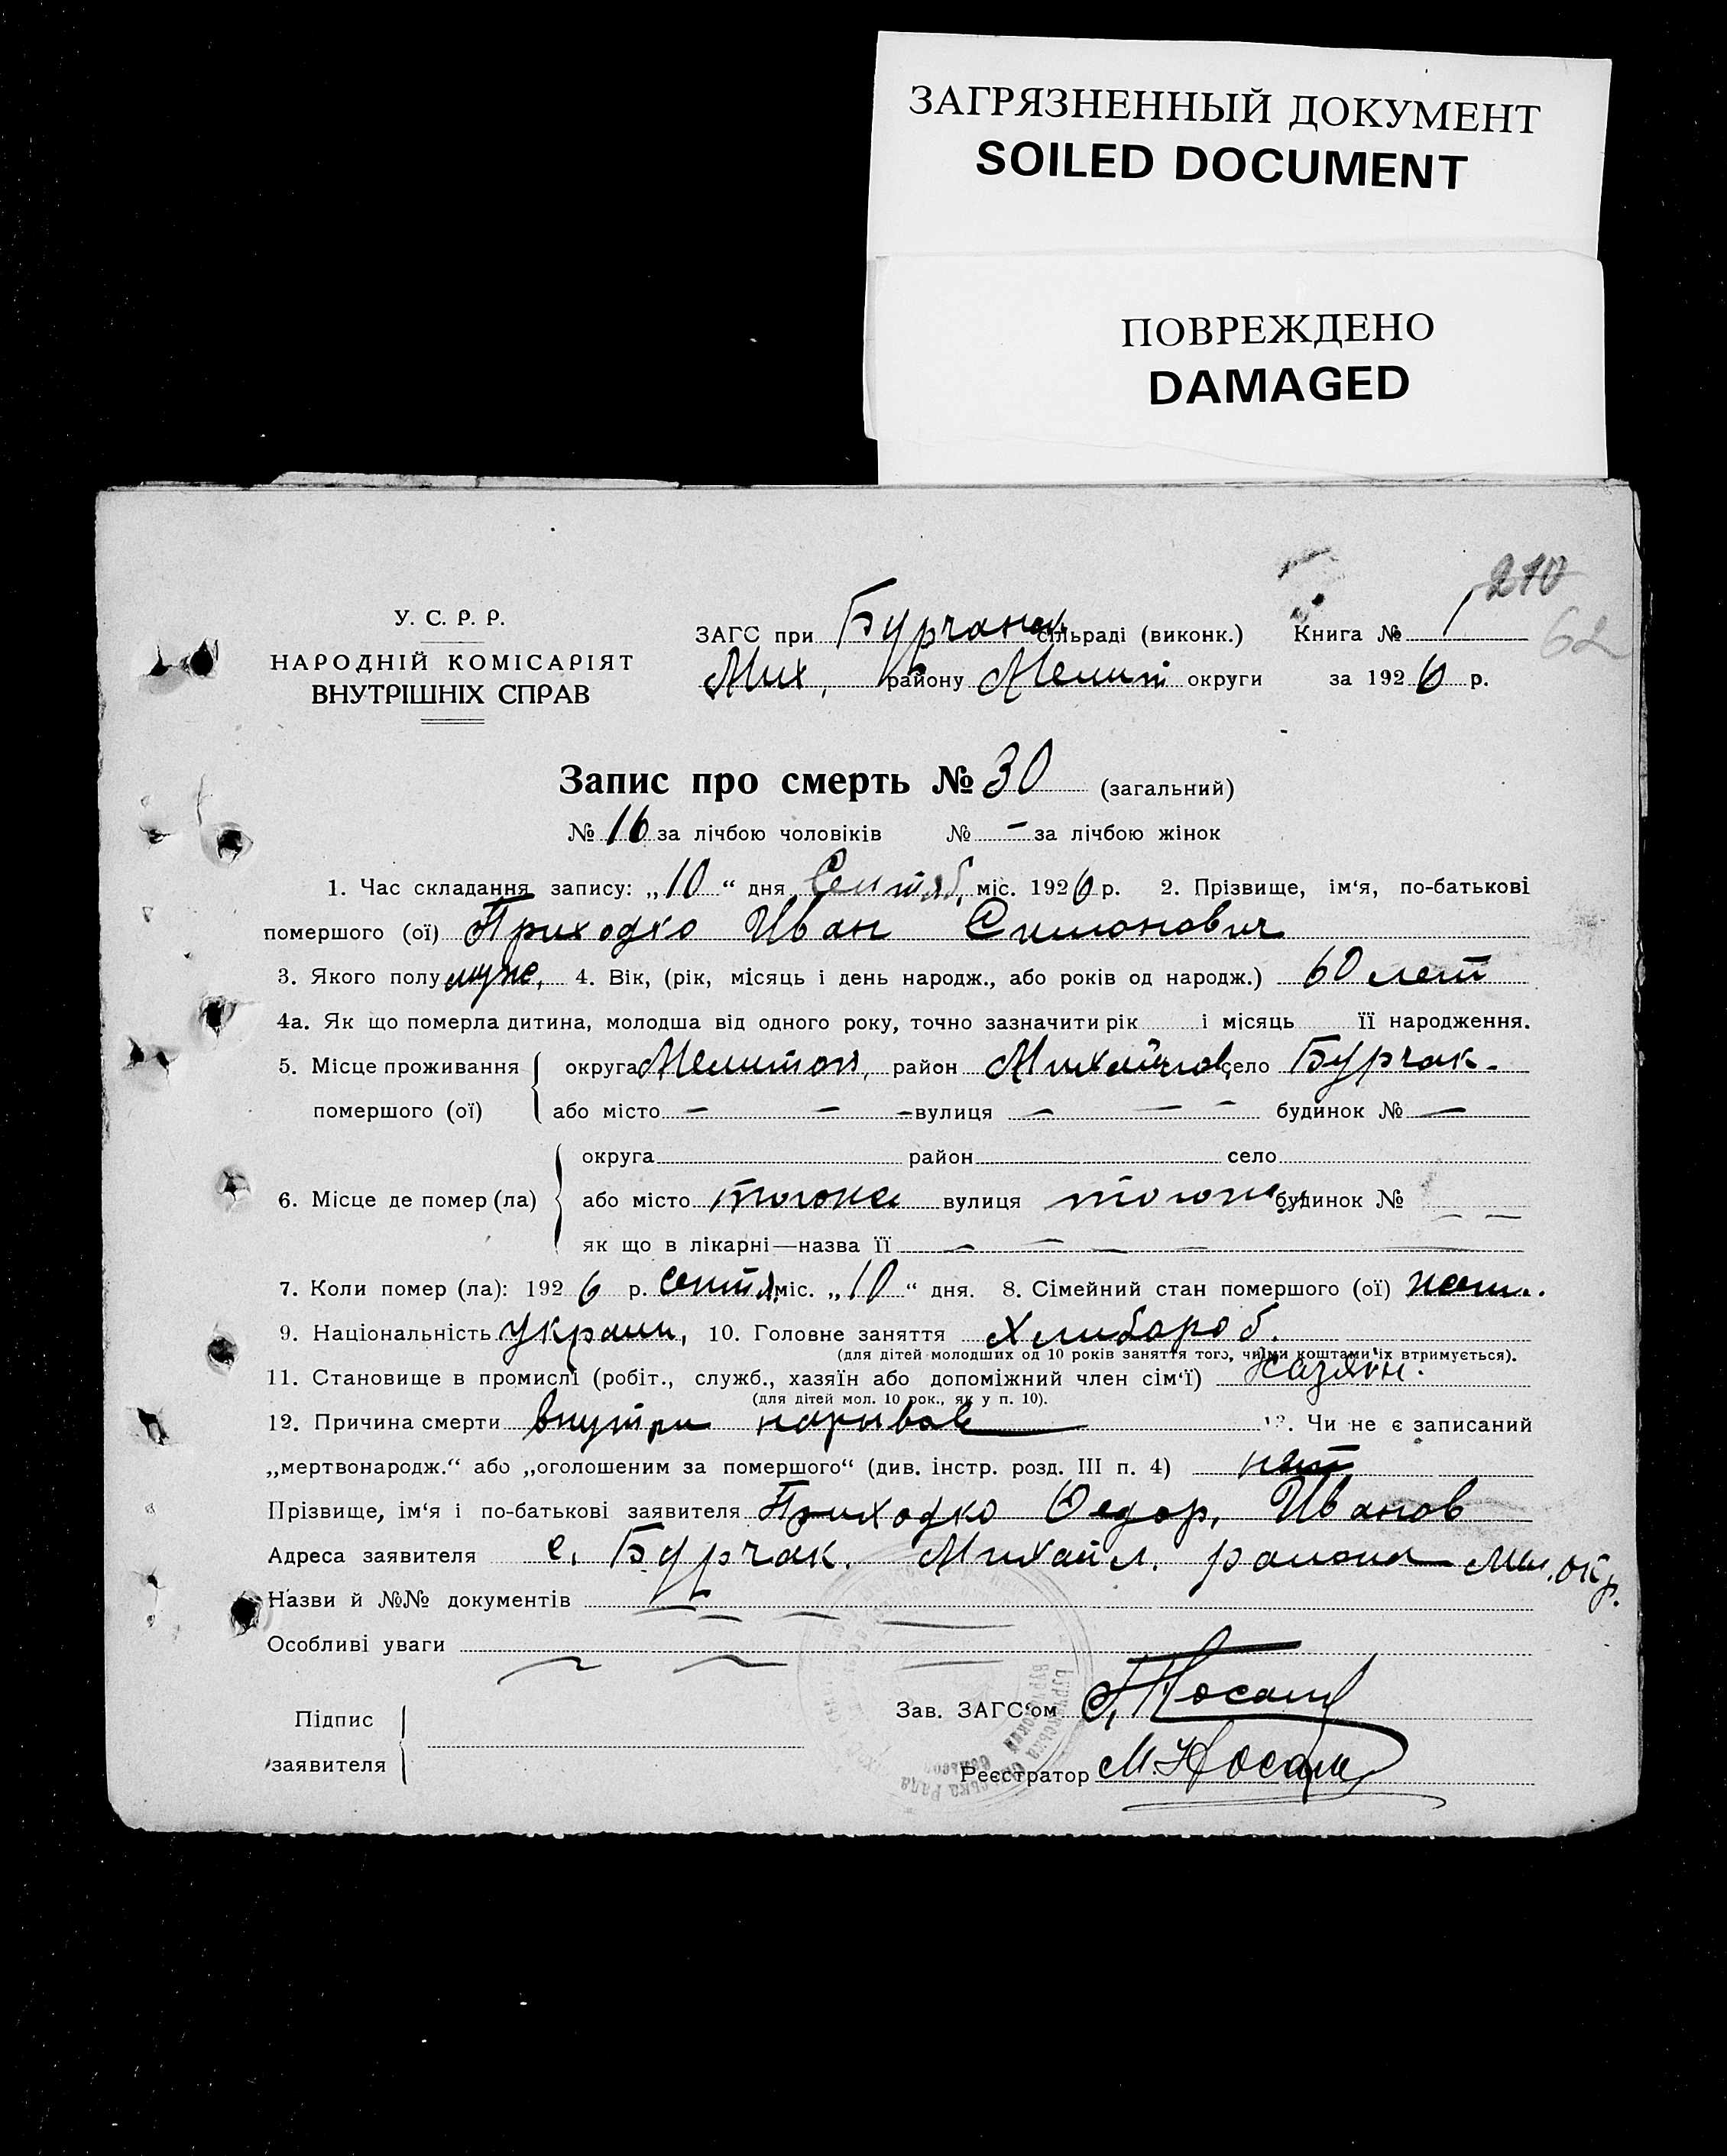 ЗАГРЯЗНЕННЫЙ ДОКУМЕНТ
SOILED DOCUMENT
ПОВРЕЖДЕНО
DAMAGED
210
62
У. С. Р. Р.
НАРОДНІЙ КОМІСАРІЯТ
ВНУТРІШНІХ СПРАВ
ЗАГС при Бурчанск сільраді (виконк.) Книга № 1
Мих, району Мелит округи за 1926 р.
Запис про смерть № 30 (загальний)
№ 16 за лічбою чоловіків № – за лічбою жінок
1. Час складання запису: „10“ дня Сентяб, міс. 1926 р. 2. Прізвище, ім‘я, по-батькові
помершого (ої) Приходко Иван Симонович
3. Якого полу муж, 4. Вік, (рік, місяць і день народж., або років од народж.) 60 лет
4а. Як що померла дитина, молодша від одного року, точно зазначити рік і місяць її народження.
5. Місце проживання округа Мелитоп, район Михайлов, село Бурчак.
помершого (ої) або місто – – – вулиця – – – будинок № –
округа район село
6. Місце де помер (ла) або місто тогоже вулиця тогоже будинок № – –
як що в лікарні—назва її – – – –
7. Коли помер (ла): 1926 р. сентя, міс. „10“ дня. 8. Сімейний стан помершого (ої)
9. Національність Украин, 10. Головне заняття Хлибороб.
(для дітей молодших од 10 років заняття того, чиїми коштами їх втримується).
11. Становище в промислі (робіт., служб., хазяїн або допоміжний член сім‘ї) Хазяин.
(для дітей мол. 10 рок., як у п. 10).
12. Причина смерти внутри нарывов 13. Чи не є записаний
„мертвонародж.“ або „оголошеним за помершого“ (див. інстр. розд. III п. 4) нет
Прізвище, ім‘я і по-батькові заявителя Приходко Федор, Иванов
Адреса заявителя с. Бурчак. Михайл. района Мел. окр.
Назви й №№ документів – – – –
Особливі уваги – – –
Підпис
заявителя
Зав. ЗАГС‘ом
Реєстратор М.